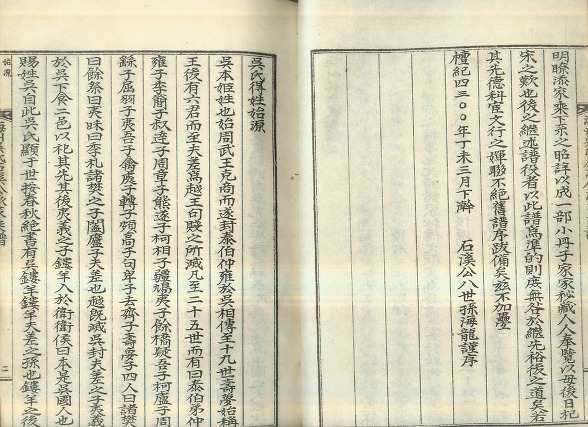 明瞭添家乘卞京之昭詳以成一部小冊子家家秘藏人人奉覽以毋後日杞
宋之歎也後之繼述譜役者以此譜爲準的則庶無咎於繼先裕後之道矣若
其先德科宦文行之嬋聯不絶舊譜序跋備矣玆不加疊
檀紀四三〇〇年丁未三月下澣 石溪公八世孫海龍謹序
吳氏得姓始源
吳本姬姓也始周武王克商而遂封泰伯仲雍於吳相傳至十九世壽夢始稱
王後有六君而至夫差爲越王句踐之所滅凡至二十五世而有曰泰伯弟仲
雍子季簡子叔達子周章子熊遂子柯相子疆鳩夷子餘橋疑吾子柯廬子周
繇子屈羽子夷吾子禽處子轉子頗高子句卑子去齊子壽夢子四人曰諸樊
曰餘祭曰夷昧曰季札諸樊之子闔廬子夫差也越旣滅吳封夫差之子夷義
於吳下食二邑以祀其先其後夷義之子鏤羊入於衛衛侯曰本是吳國人也
賜姓吳自此吳氏顯于世按春秋絶書有吳鏤羊鏤羊夫差之孫也鏤羊之後
始源
二